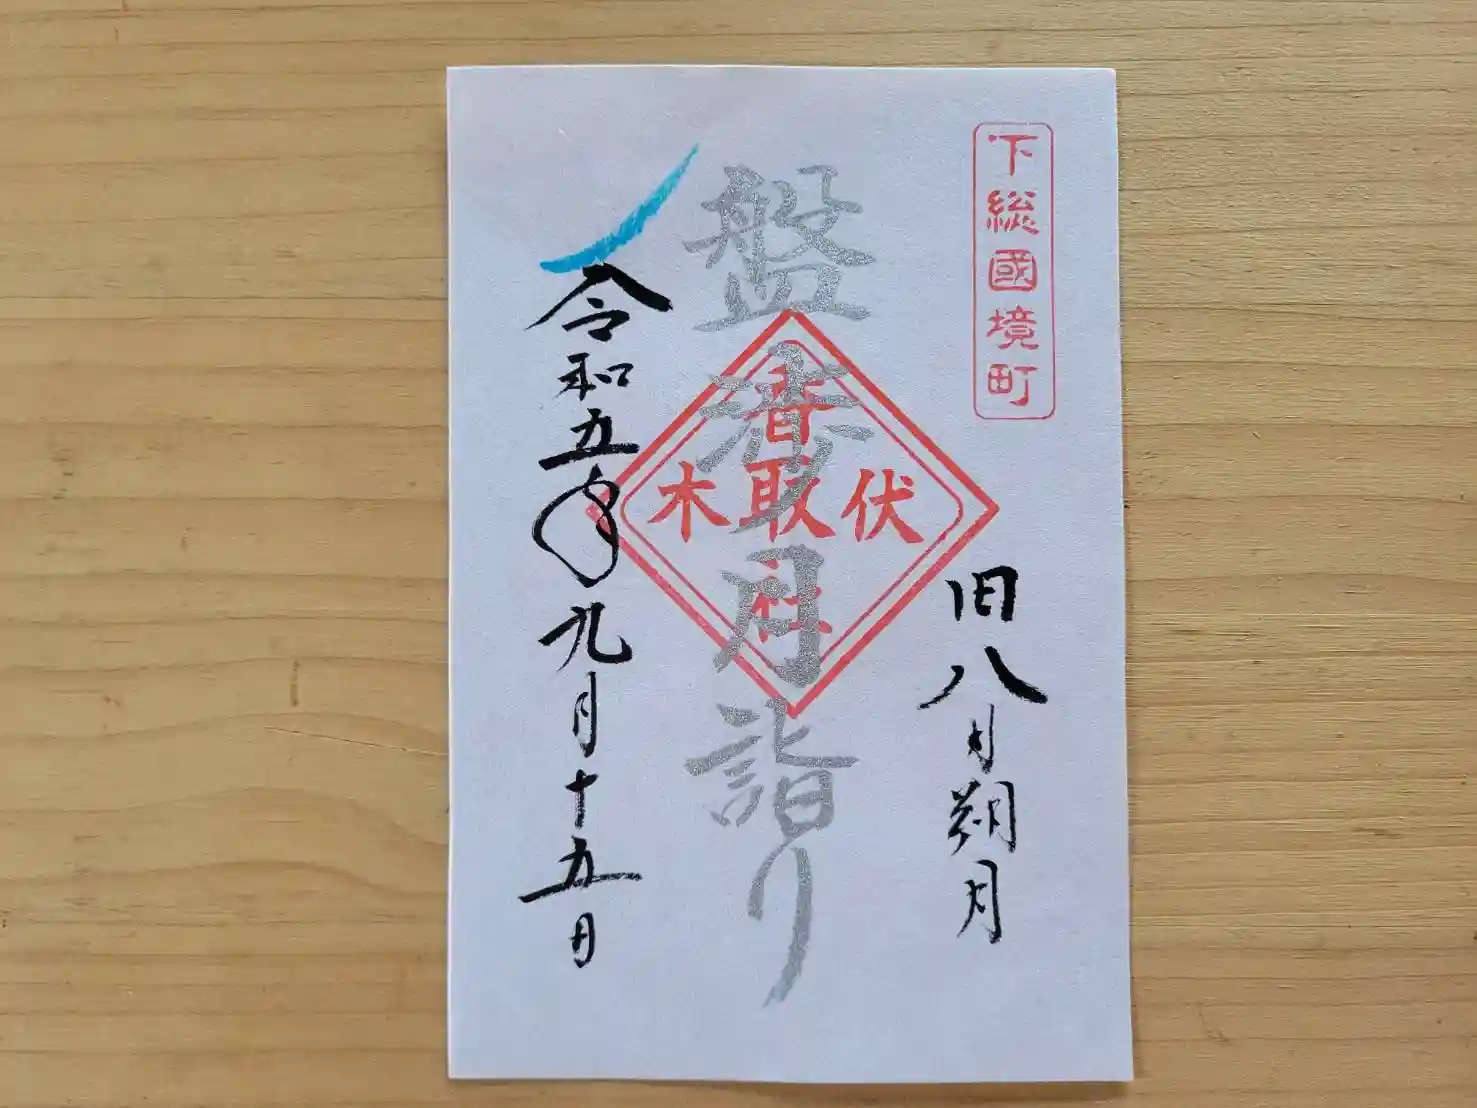 下総國境町
旧八月朔月
盤渉月詣り
伏木
香取社
令和五年九月十五日